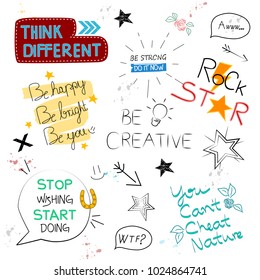 THINK
DIFFERENT
Awww...
BE STRONG
DO IT NOW
ROCK
STAR
Be happy
Be bright
Be you
BE
CREATIVE
STOP
WISHING
START
DOING
You
Can't
Cheat
Nature
WTF?
shutterstock.com · 1024864741